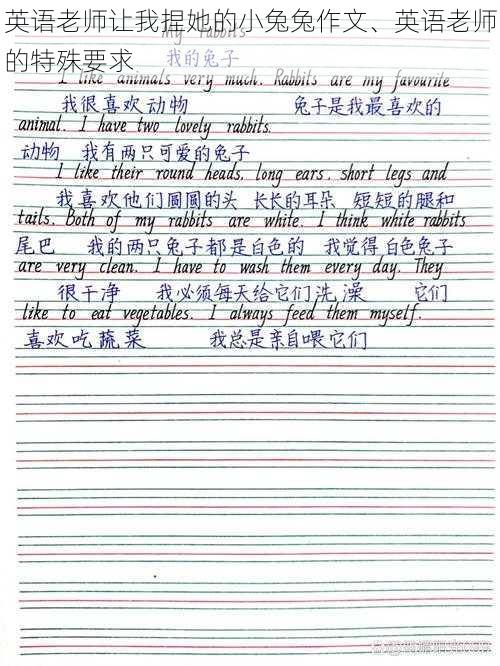 英语老师让我捏她的小兔兔作文、英语老师
的特殊要求
My Rabbits
我的兔子
I like animals very much. Rabbits are my favourite
我很喜欢动物 兔子是我最喜欢的
animal. I have two lovely rabbits.
动物 我有两只可爱的兔子
I like their round heads, long ears, short legs and
我喜欢他们圆圆的头 长长的耳朵 短短的腿和
tails. Both of my rabbits are white. I think white rabbits
尾巴 我的两只兔子都是白色的 我觉得白色兔子
are very clean. I have to wash them every day. They
很干净 我必须每天给它们洗澡 它们
like to eat vegetables. I always feed them myself.
喜欢吃蔬菜 我总是亲自喂它们